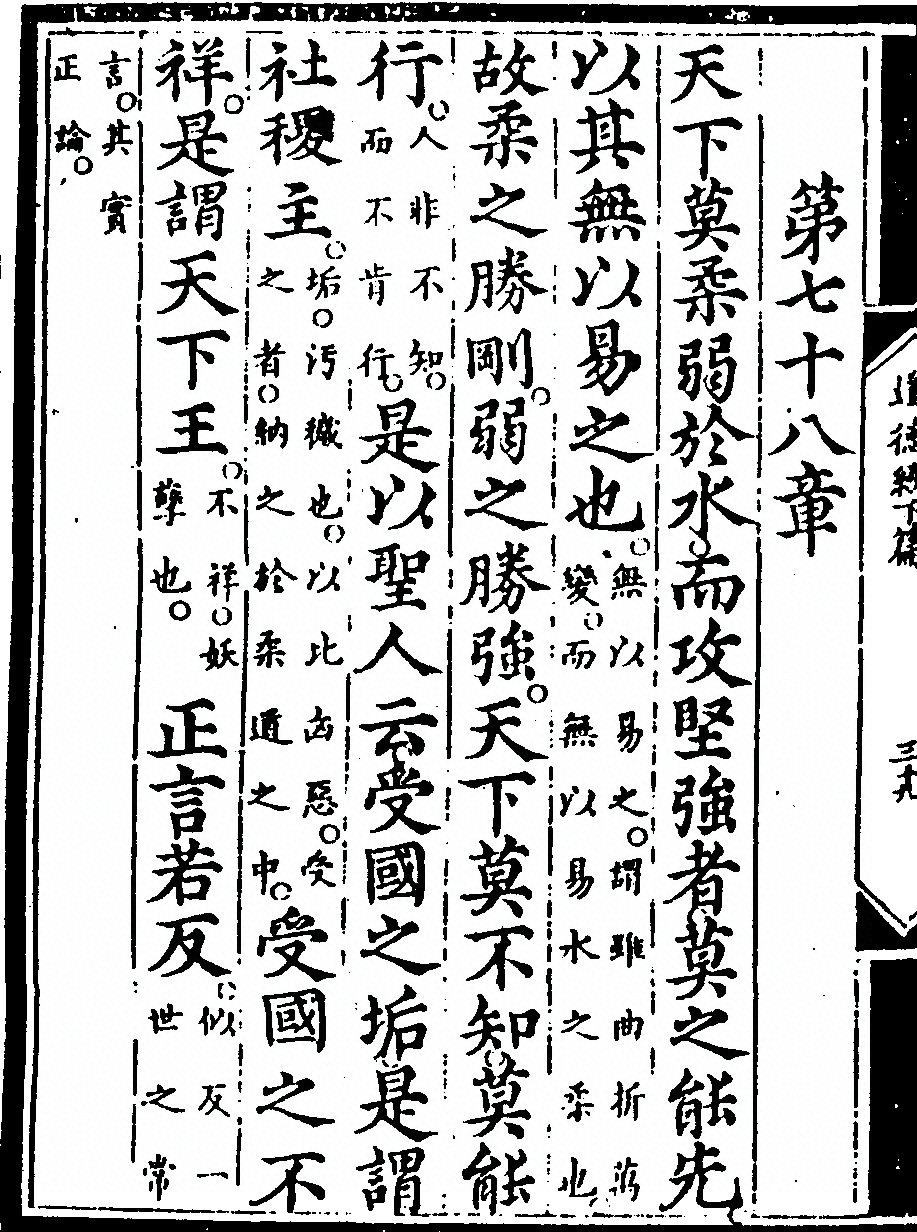 道德經下篇
第七十八章
天下莫柔弱於水。而攻堅強者莫之能先
以其無以易之也。無以易之。謂雖曲折蕩變。而無以易水之柔也
故柔之勝剛。弱之勝強。天下莫不知莫能
行。人非不知。而不肯行。是以聖人云受國之垢是謂
社稷主。垢。污穢也。以比凶惡。受之者。納之於柔道之中。受國之不
祥。是謂天下王。不祥。妖孽也。正言若反。似反一世之常
言。其實正論。